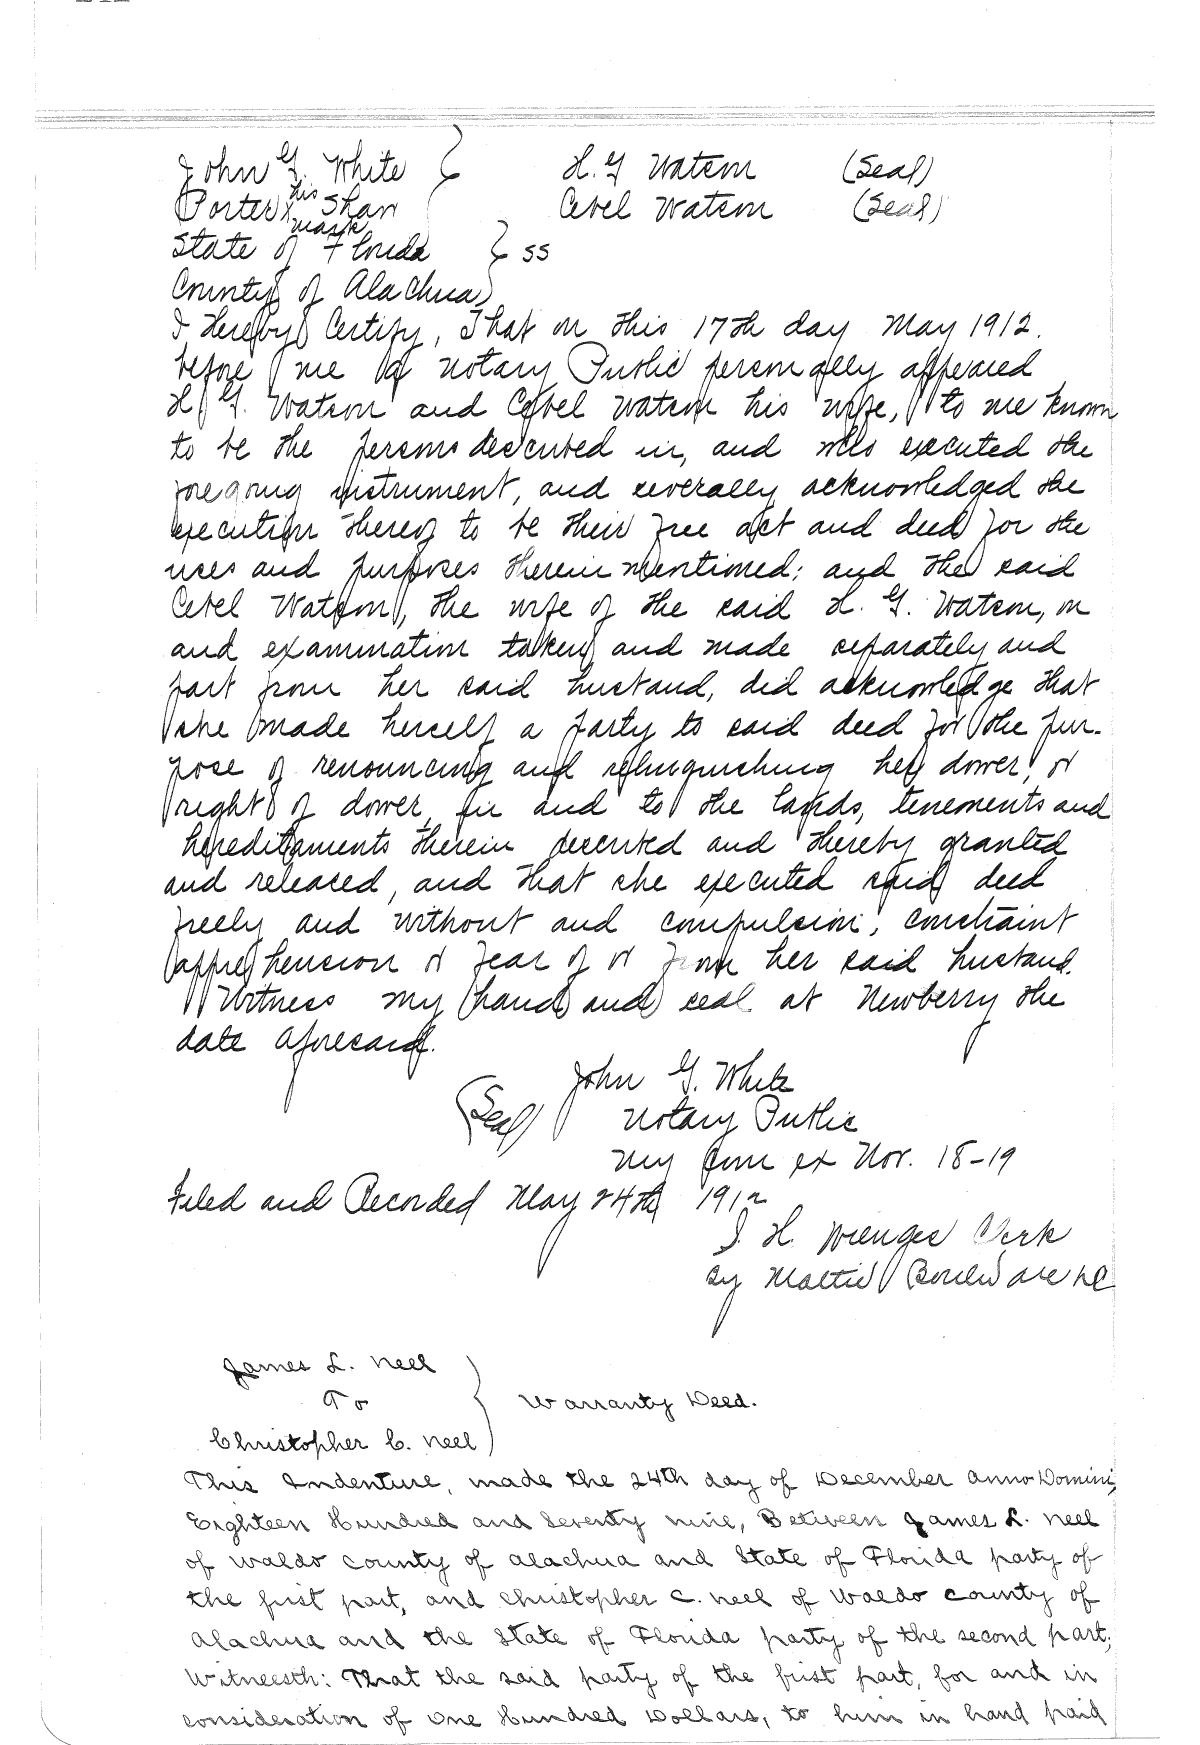 John G. White } H. G Watson (Seal)
Porter x Shaw Cebel Watson (Seal)
his
mark
State of Florida } ss
County of Alachua
I Hereby Certify, That on this 17th day May 1912.
before me a Notary Public personally appeared
H. G. Watson and Cebel Watson his wife, to me known
to be the persons described in, and who executed the
foregoing instrument, and severally acknowledged the
execution thereof to be their free act and deed for the
uses and purposes therein mentioned; and the said
Cebel Watson, the wife of the said H. G. Watson, on
and examination taken and made separately and
part from her said husband, did acknowledge that
she made herself a party to said deed for the pur-
pose of renouncing and relinquishing her dower, or
right of dower, in and to the lands, tenements and
hereditaments therein described and thereby granted
and released, and that she executed said deed
freely and without and compulsion, constraint
apprehension or fear of or from her said husband.
Witness my hand and seal at Newberry the
date aforesaid.
John G. White
(Seal) Notary Public
My Com ex Nov. 18-19
Filed and Recorded May 24th 1912
S. H. Wienges Clerk
By Mattie Boulware DC
James L. Neel
To } Warranty Deed.
Christopher C. Neel
This Indenture, made the 24th day of December Anno Domini,
Eighteen Hundred and Seventy nine, Between James L. Neel
of Waldo County of Alachua and State of Florida party of
the first part, and Christopher C. Neel of Waldo County of
Alachua and the State of Florida party of the second part;
Witneesth: That the said party of the first part, for and in
consideration of One Hundred Dollars, to him in hand paid